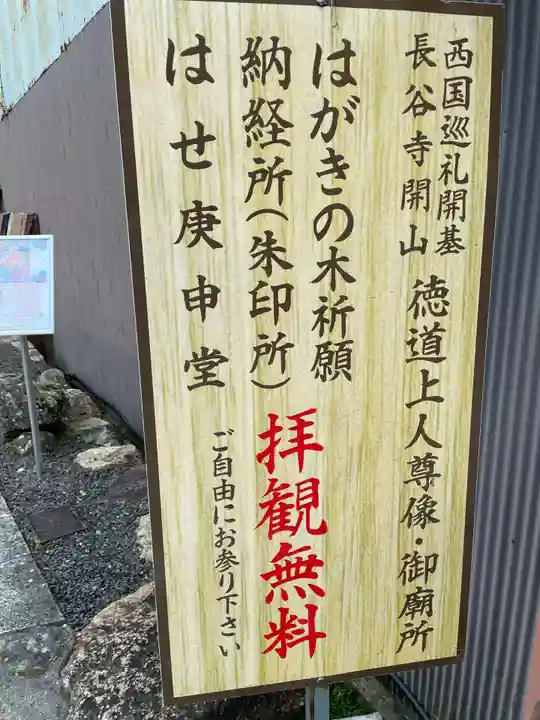 西国巡礼開基
長谷寺開山
徳道上人尊像・御廟所
はがきの木祈願
納経所(朱印所)
はせ庚申堂
拝観無料
ご自由にお参り下さい